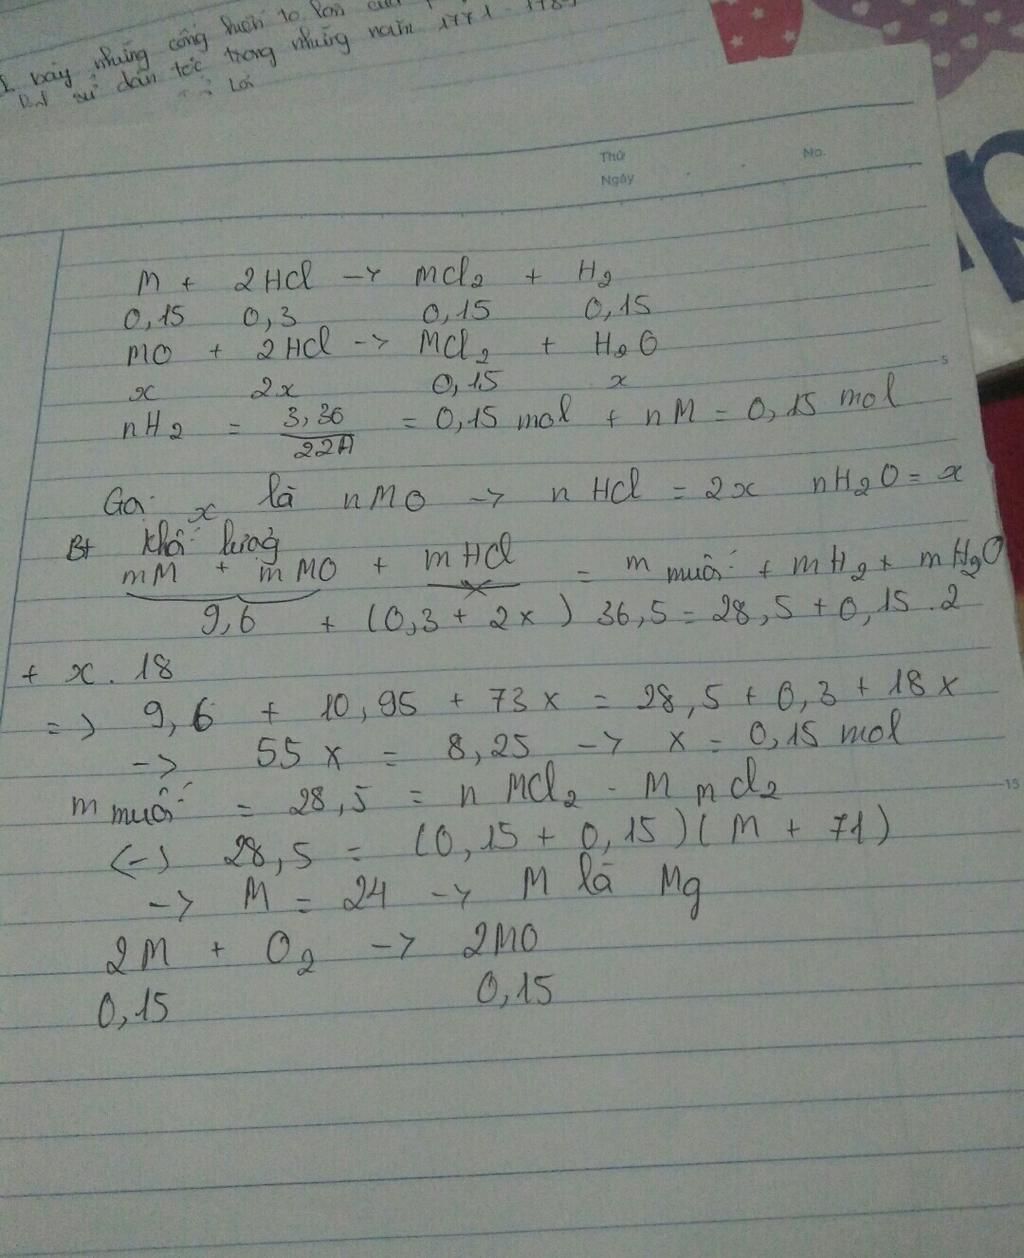 bày những công
sử dân tộc trong những năm 1771 - 178
Lời
Thứ
Ngày
No.
M + 2HCl -> MCl2 + H2
0,15 0,3 0,15 0,15
MO + 2HCl -> MCl2 + H2O
5
x 2x 0,15 x
nH2 = 3,36 / 22,4 = 0,15 mol + nM = 0,15 mol
Gọi x là nMO -> nHCl = 2x nH2O = x
Bt khối lượng
mM + mMO + mHCl = m muối + mH2 + mH2O
9,6 + (0,3 + 2x) 36,5 = 28,5 + 0,15.2
+ x. 18
=> 9,6 + 10,95 + 73x = 28,5 + 0,3 + 18x
-> 55x = 8,25 -> x = 0,15 mol
15
m muối = 28,5 = n MCl2 . M MCl2
<-> 28,5 = (0,15 + 0,15)(M + 71)
-> M = 24 -> M là Mg
2M + O2 -> 2MO
0,15 0,15